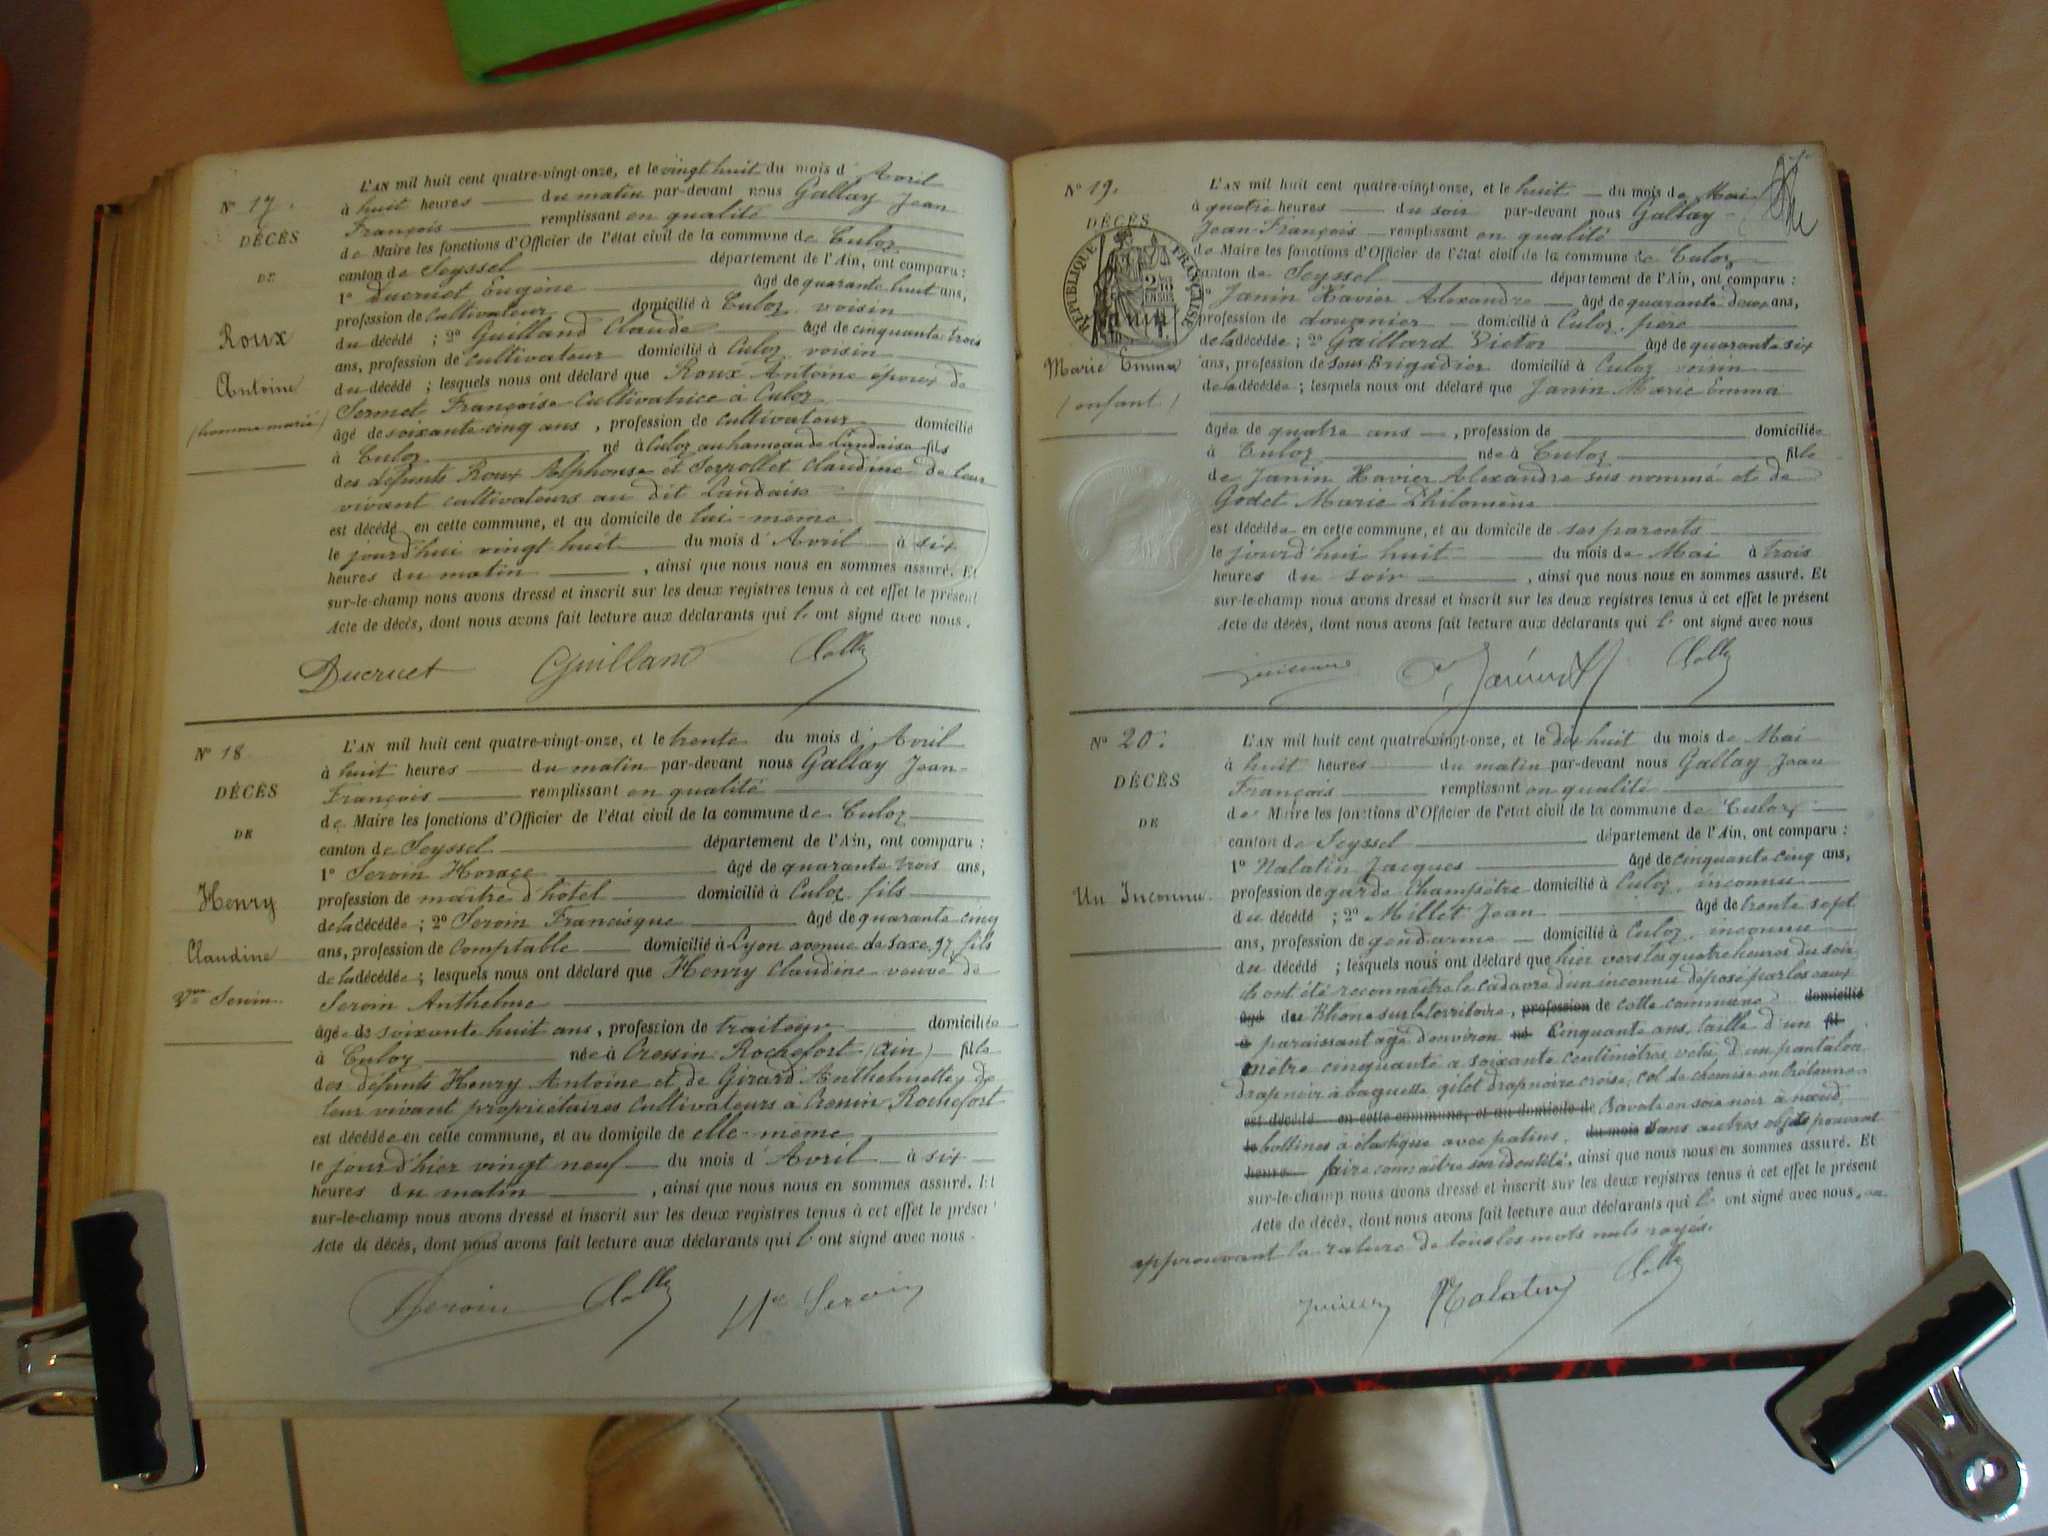 N° 17.
DÉCÈS
DE
Roux
Antoine
(homme marié)
L'AN mil huit cent quatre-vingt-onze, et le vingt huit du mois d'Avril
à huit heures du matin par-devant nous Gallay Jean
François remplissant en qualité
de Maire les fonctions d'Officier de l'état civil de la commune de Culoz
canton de Seyssel département de l'Ain, ont comparu :
1° Ducruet Eugène âgé de quarante huit ans,
profession de cultivateur domicilié à Culoz, voisin
du décédé ; 2° Guilland Claude âgé de cinquante trois
ans, profession de cultivateur domicilié à Culoz voisin
du décédé ; lesquels nous ont déclaré que Roux Antoine époux de
Sermet Françoise cultivatrice à Culoz
âgé de soixante cinq ans, profession de cultivateur domicilié
à Culoz né à Culoz au hameau de Landaise fils
des défunts Roux Alphonse et Serpollet Claudine de leur
vivant cultivateurs au dit Landaise
est décédé en cette commune, et au domicile de lui-même
le jourd'hui vingt huit du mois d'Avril à six
heures du matin, ainsi que nous nous en sommes assuré. Et
sur-le-champ nous avons dressé et inscrit sur les deux registres tenus à cet effet le présent
Acte de décès, dont nous avons fait lecture aux déclarants qui l' ont signé avec nous.
Ducruet Guilland
N° 18
DÉCÈS
DE
Henry
Claudine
Vve Seroin
L'AN mil huit cent quatre-vingt-onze, et le trente du mois d'Avril
à huit heures du matin par-devant nous Gallay Jean-
François remplissant en qualité
de Maire les fonctions d'Officier de l'état civil de la commune de Culoz
canton de Seyssel département de l'Ain, ont comparu :
1° Seroin Horace âgé de quarante trois ans,
profession de maître d'hôtel domicilié à Culoz, fils
de la décédée ; 2° Seroin Francisque âgé de quarante cinq
ans, profession de comptable domicilié à Lyon avenue de Saxe, 97, fils
de la décédée ; lesquels nous ont déclaré que Henry Claudine veuve de
Seroin Anthelme
âgée de soixante huit ans, profession de traiteur domiciliée
à Culoz née à Cressin Rochefort (Ain) fille
des défunts Henry Antoine et de Girard Anthelmette, de
leur vivant propriétaires cultivateurs à Cressin Rochefort
est décédée en cette commune, et au domicile de elle-même
le jour d'hier vingt neuf du mois d'Avril à six
heures du matin, ainsi que nous nous en sommes assuré. Et
sur-le-champ nous avons dressé et inscrit sur les deux registres tenus à cet effet le présen
Acte de décès, dont nous avons fait lecture aux déclarants qui l' ont signé avec nous.
Seroin Seroin
N° 19.
DÉCÈS
RÉPUBLIQUE FRANÇAISE
Marie Emma
(enfant)
L'AN mil huit cent quatre-vingt-onze, et le huit du mois de Mai
à quatre heures du soir par-devant nous Gallay
Jean-François remplissant en qualité
de Maire les fonctions d'Officier de l'état civil de la commune de Culoz
canton de Seyssel département de l'Ain, ont comparu :
1° Janin Xavier Alexandre âgé de quarante deux ans,
profession de douanier domicilié à Culoz, père
de la décédée ; 2° Gaillard Victor âgé de quarante six
ans, profession de Sous Brigadier domicilié à Culoz voisin
de la décédée ; lesquels nous ont déclaré que Janin Marie Emma
âgée de quatre ans, profession de domiciliée
à Culoz née à Culoz fille
de Janin Xavier Alexandre sus nommé et de
Godet Marie Philomène
est décédée en cette commune, et au domicile de ses parents
le jourd'hui huit du mois de Mai à trois
heures du soir, ainsi que nous nous en sommes assuré. Et
sur-le-champ nous avons dressé et inscrit sur les deux registres tenus à cet effet le présent
Acte de décès, dont nous avons fait lecture aux déclarants qui l' ont signé avec nous
N° 20.
DÉCÈS
DE
Un Inconnu
L'AN mil huit cent quatre-vingt-onze, et le dix huit du mois de Mai
à huit heures du matin par-devant nous Gallay Jean
François remplissant en qualité
de Maire les fonctions d'Officier de l'état civil de la commune de Culoz
canton de Seyssel département de l'Ain, ont comparu :
1° Nalatin Jacques âgé de cinquante cinq ans,
profession de garde champêtre domicilié à Culoz, inconnu
du décédé ; 2° Millet Jean âgé de trente sept
ans, profession de gendarme domicilié à Culoz, inconnu
du décédé ; lesquels nous ont déclaré que hier vers les quatre heures du soir
ils ont été reconnaître le cadavre d'un inconnu déposé par les eaux
âgé du Rhône sur le territoire, profession de cette commune domicilié
à paraissant âgé d'environ né Cinquante ans, taille d'un fil
mètre cinquante à soixante centimètres, vêtu d'un pantalon
drap noir à baguette, gilet drap noire croisé, col de chemise en cretonne
est décédé en cette commune, et au domicile de Cravate en soie noir à nœud
le bottines à élastique avec patins, du mois Sans autres objets pouvant
heures faire connaître son identité, ainsi que nous nous en sommes assuré. Et
sur-le-champ nous avons dressé et inscrit sur les deux registres tenus à cet effet le présent
Acte de décès, dont nous avons fait lecture aux déclarants qui l' ont signé avec nous, en
approuvant la rature de tous les mots nuls rayés.
Nalatin